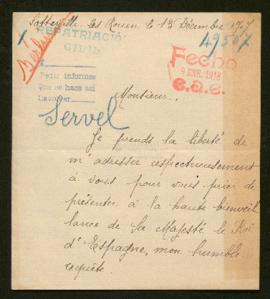 Sotteville les Rouen le 15 Décembre 1917
49567
REPATRIACIÓN
CIVIL
Berlin
Fecho
9 ENE. 1918
c.a.e.
Pedir informes
Que se haga así
Devolver
Servel
Monsieur,
Je prends la liberté de
m'adresser respectueusement
à vous pour vous prier de
présenter à la haute bienveil
lance de sa Majesté le Roi
d'Espagne, mon humble
requête